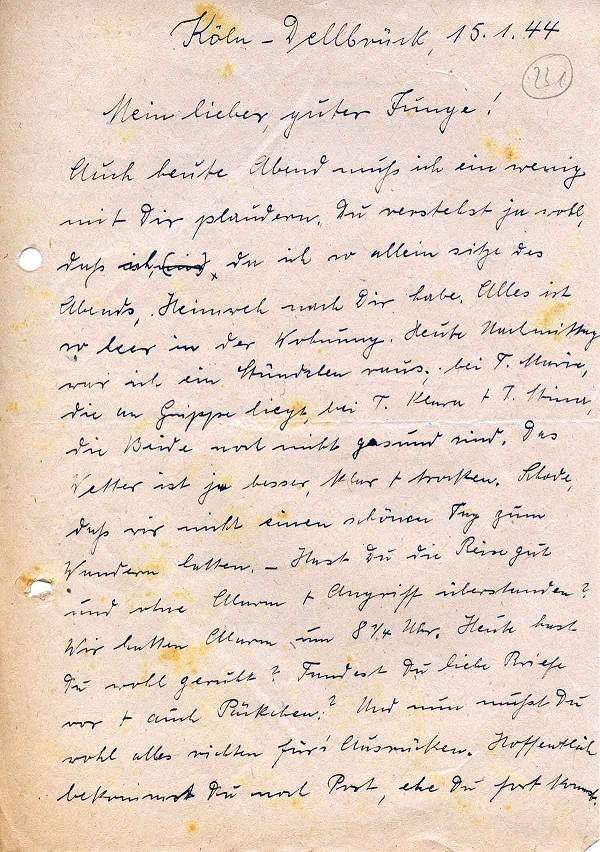 Köln – Dellbrück, 15.1.44
231
Mein lieber, guter Junge!
Auch heute Abend muß ich ein wenig
mit Dir plaudern. Du verstehst ja wohl,
daß ich, da ich so allein sitze des
Abends, Heimweh nach Dir habe. Alles ist
so leer in der Wohnung. Heute Nachmittag
war ich ein Stündchen raus; bei T. Maria,
die an Grippe liegt, bei T. Klara + T. Stina,
die Beide noch nicht gesund sind. Das
Wetter ist ja besser, klar + trocken. Schade,
daß wir nicht einen schönen Tag zum
Wandern hatten. – Hast Du die Reise gut
und ohne Alarm + Angriff überstanden?
Wir hatten Alarm um 8 3/4 Uhr. Heute hast
Du wohl geruht? Fandest Du liebe Briefe
vor + auch Päckchen? Und nun mußt Du
wohl alles richten für's Ausrücken. Hoffentlich
bekommst Du noch Post, ehe Du fort kommst.